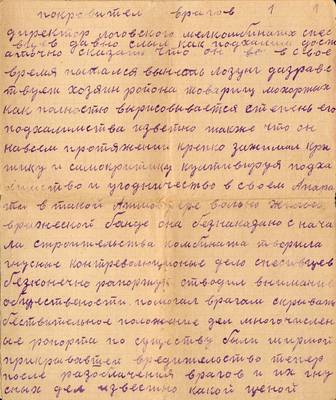 покровител врагов 1 1
директор логовского мелкомбината спес
ивцев давно слыл как подхалим дост
аточно сказать что он во всвое
время питался вынесть лозунг да здрав
твует хозяин ротона товарищ
как полностью вырисовывается степень его
подхалимства известно также что он
на всем протяжении крепко зажимал кри
тику и самокритику культивируя подха
лимство и угодничество в своем Аппара
те в такой Атмосфере вольно жилось
вражеской банде она безнаказано с нача
ла строительства комбината творила
гнусные контреволюционые дело спесивцев
безконечно рапортуя отводил внимание
обществености помогал врагам скрывать
действительное положение дел многочислен
ые рапорта по существу были ширмой
прикрывавшей вредительство теперь
после разоблачения врагов и их гну
сных дел известно какой ценой